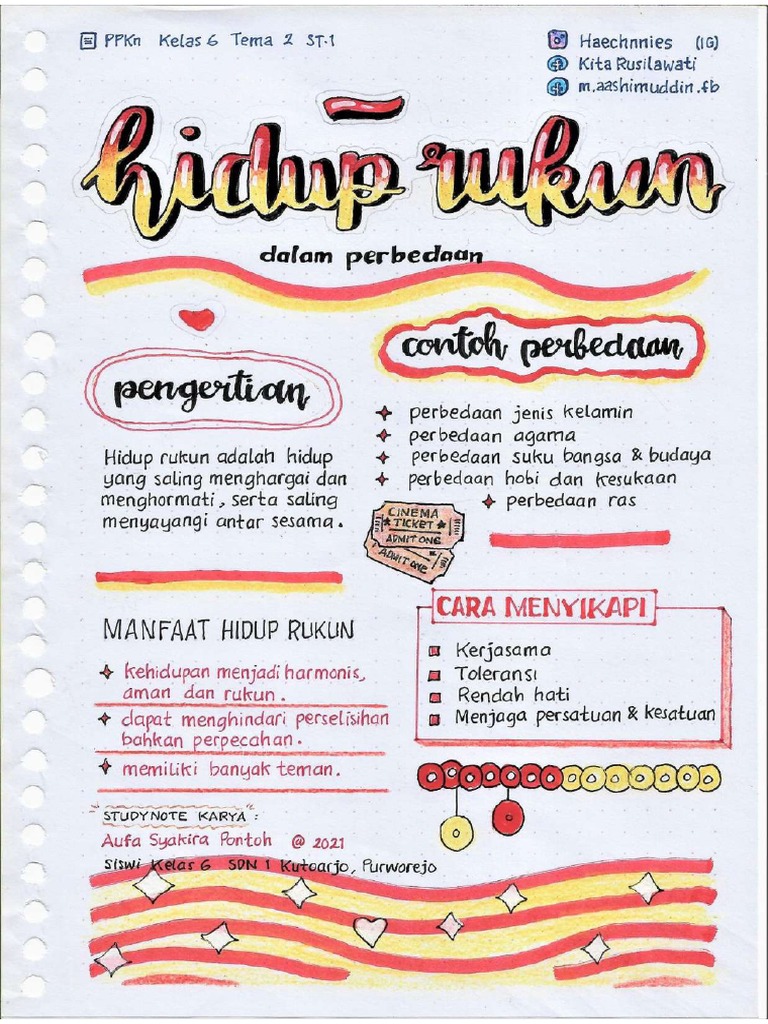 PPKn Kelas 6 Tema 2 ST.1
Haechnnies (IG)
Kita Rusilawati
m.aashimuddin.fb
hidup rukun
dalam perbedaan
pengertian
Hidup rukun adalah hidup
yang saling menghargai dan
menghormati, serta saling
menyayangi antar sesama.
contoh perbedaan
perbedaan jenis kelamin
perbedaan agama
perbedaan suku bangsa & budaya
perbedaan hobi dan kesukaan
perbedaan ras
CINEMA
TICKET
ADMIT ONE
ADMIT ONE
MANFAAT HIDUP RUKUN
kehidupan menjadi harmonis,
aman dan rukun.
dapat menghindari perselisihan
bahkan perpecahan.
memiliki banyak teman.
CARA MENYIKAPI
Kerjasama
Toleransi
Rendah hati
Menjaga persatuan & kesatuan
STUDYNOTE KARYA :
Aufa Syakira Pontoh @ 2021
Siswi Kelas 6 SDN 1 Kutoarjo, Purworejo